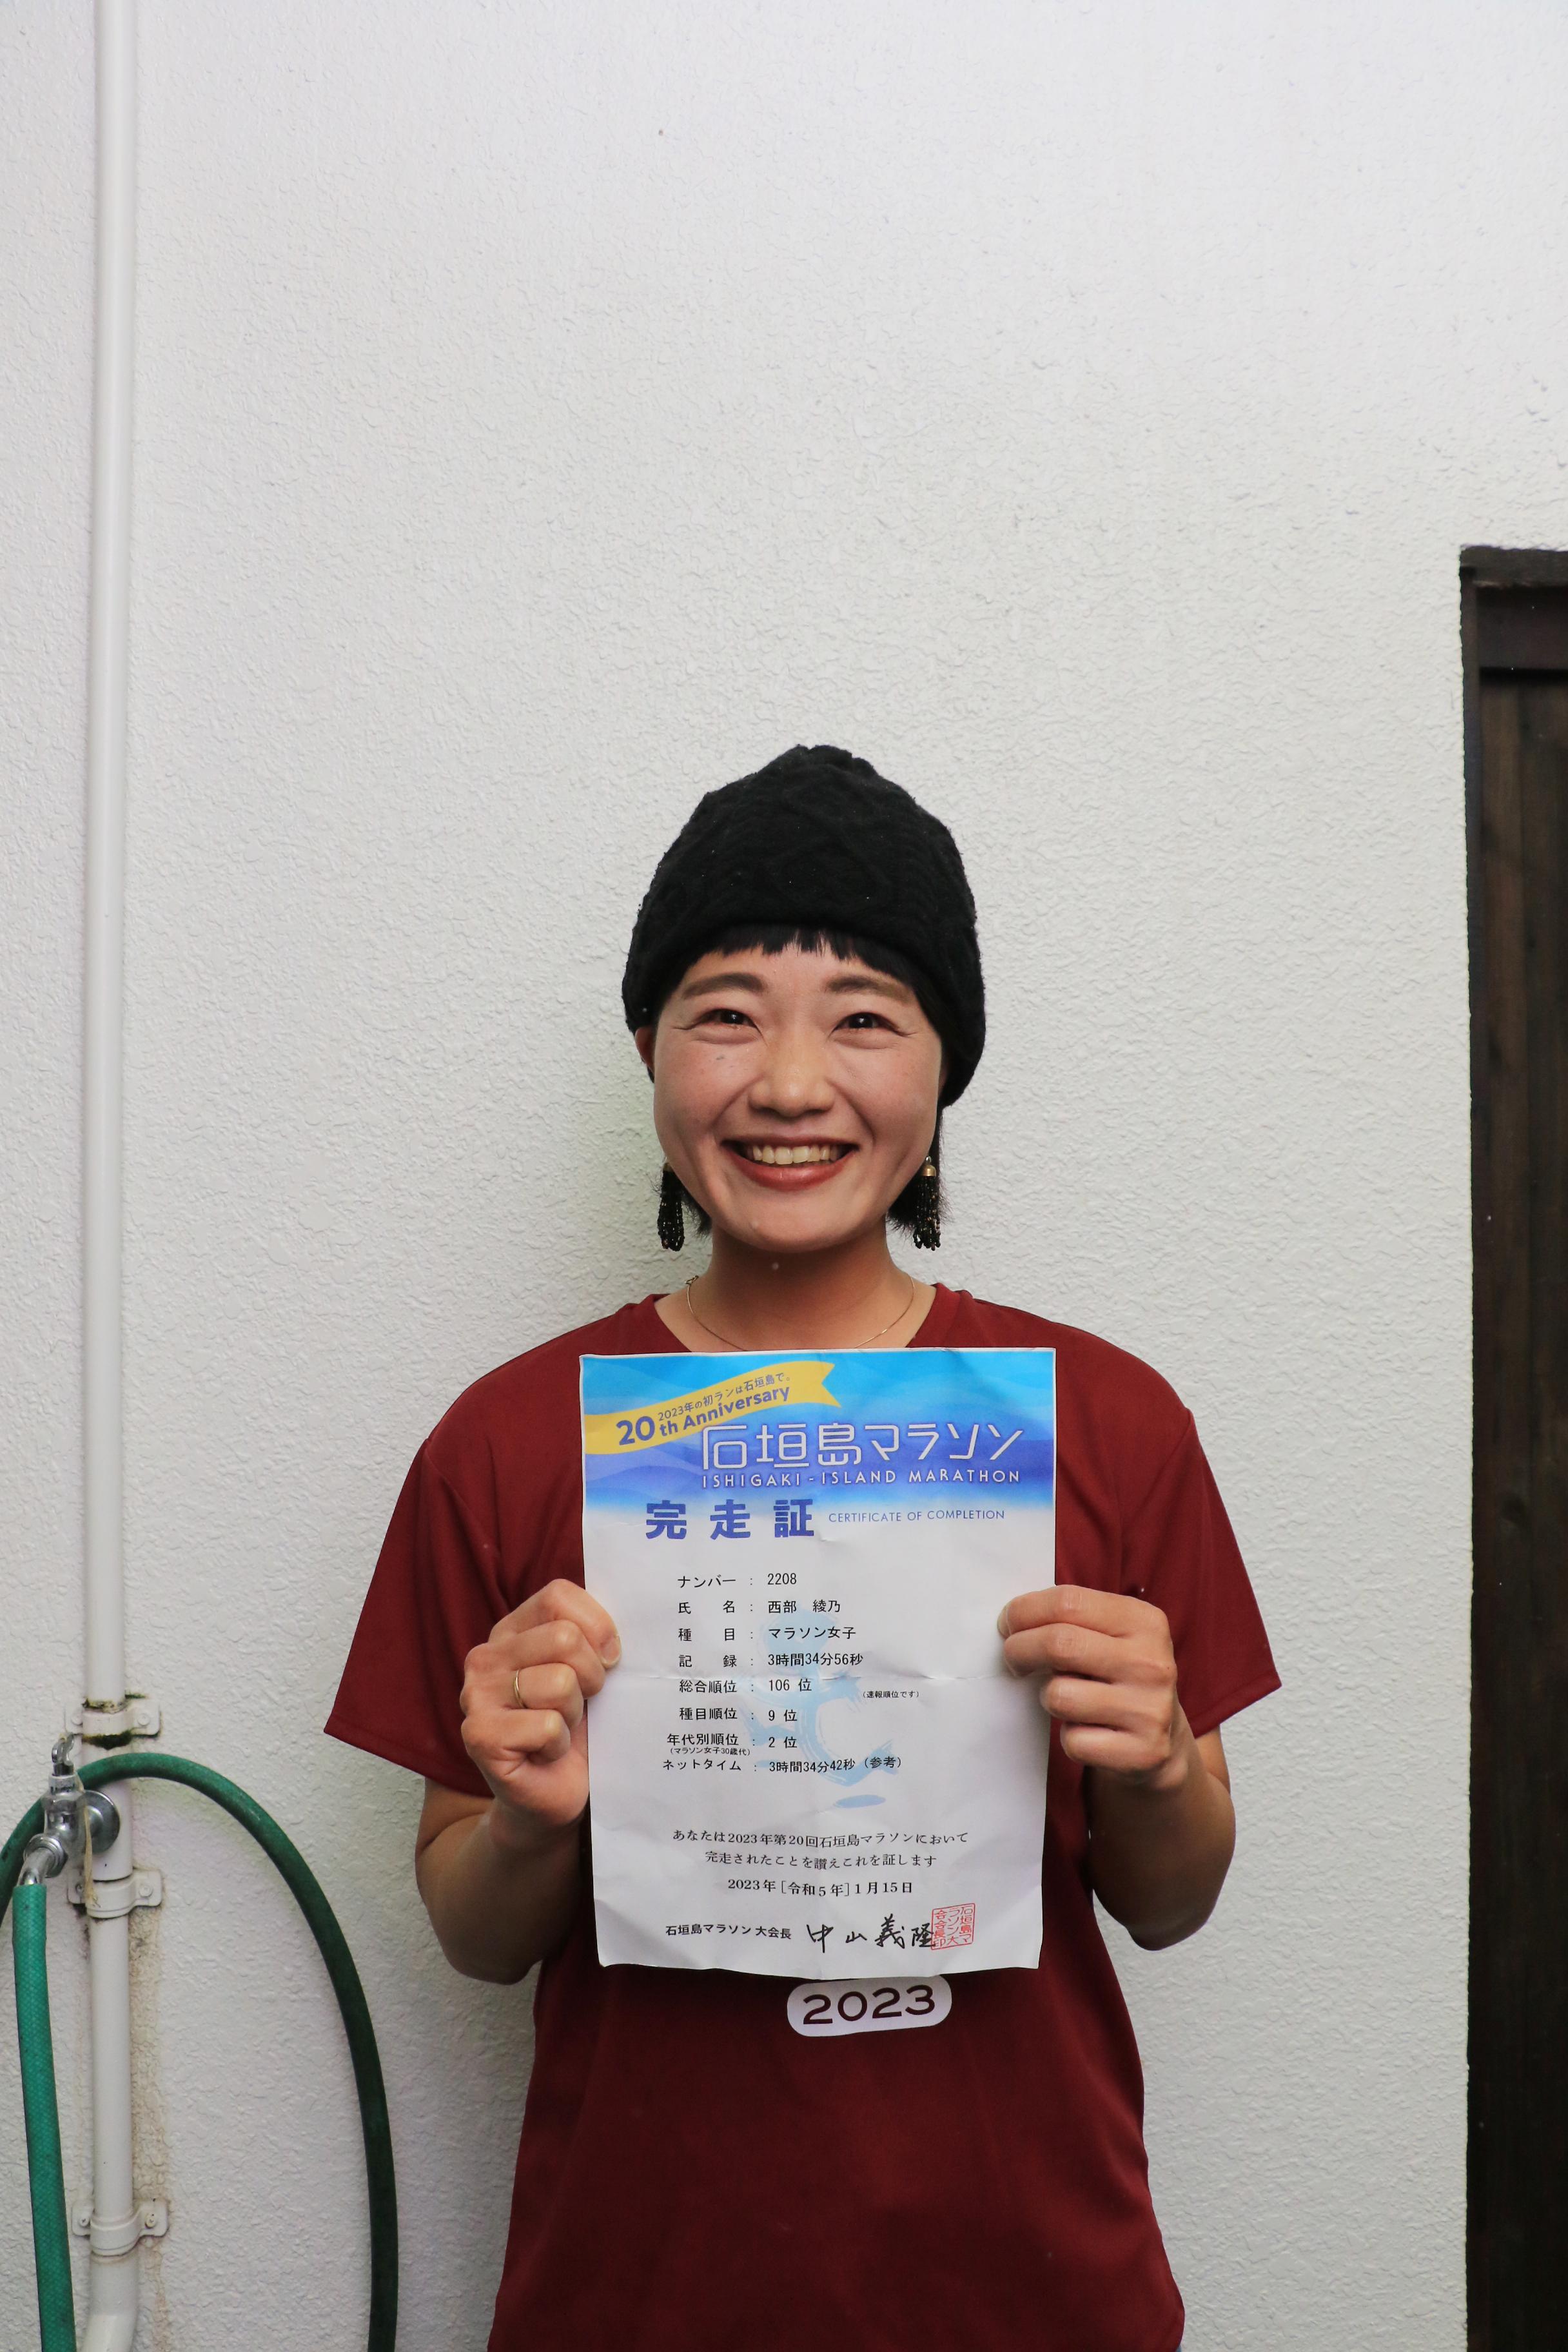 2023年の初ランは石垣島で。
20th Anniversary
石垣島マラソン
ISHIGAKI-ISLAND MARATHON
完走証 CERTIFICATE OF COMPLETION
ナンバー : 2208
氏 名 : 西部 綾乃
種 目 : マラソン女子
記 録 : 3時間34分56秒
総合順位 : 106 位 (速報順位です)
種目順位 : 9 位
年代別順位 : 2 位
(マラソン女子30歳代)
ネットタイム : 3時間34分42秒 (参考)
あなたは2023年第20回石垣島マラソンにおいて
完走されたことを讃えこれを証します
2023年[令和5年]1月15日
石垣島マラソン大会長 中山義隆
石垣島マラソン大会会長印
2023